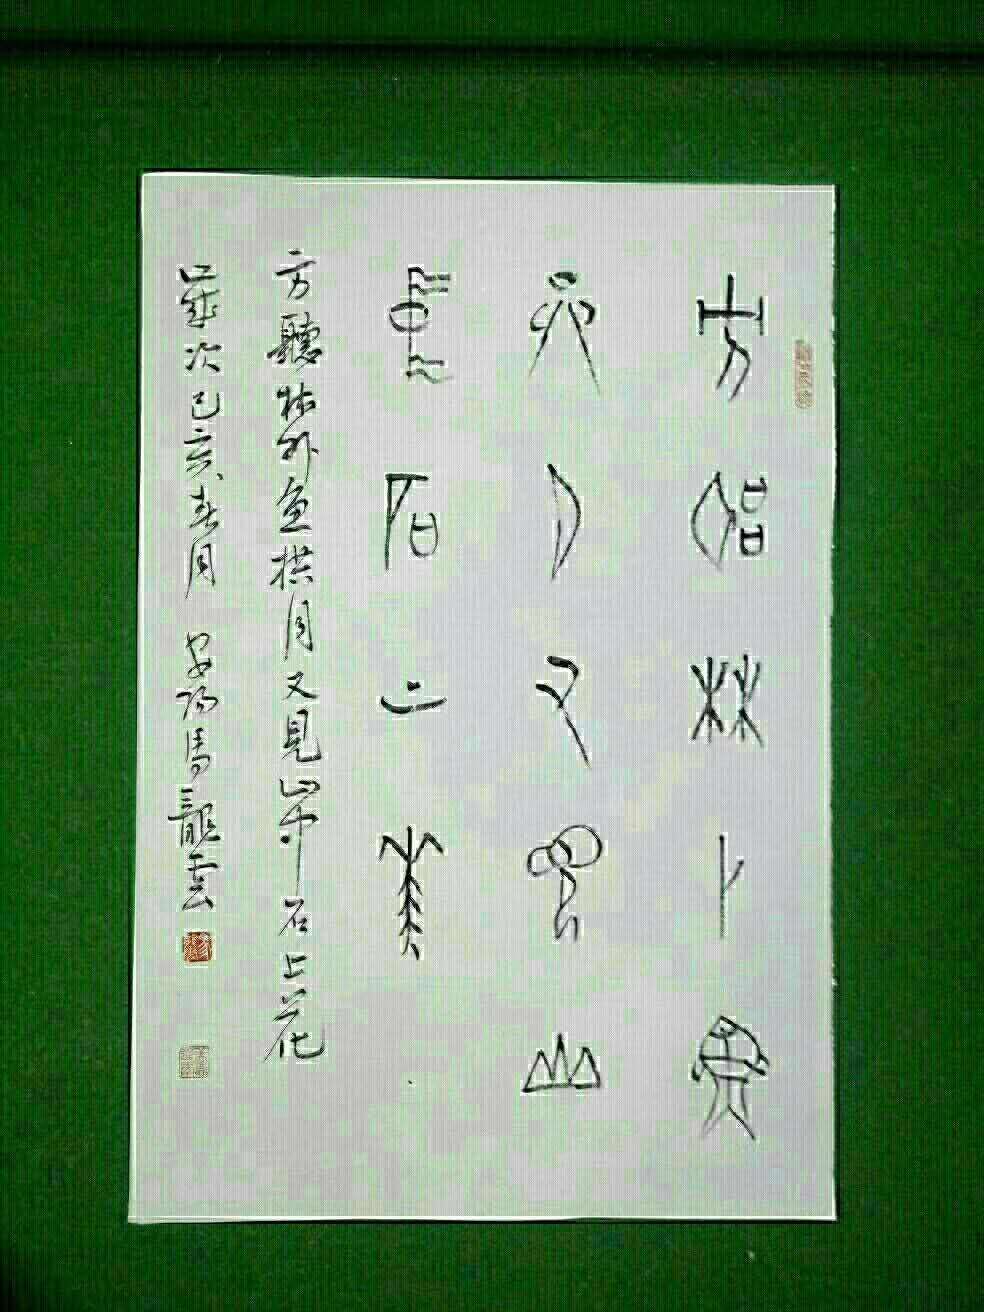 方聽林外
月又見山
中石上花
方聽林外月又見山中石上花
歲次己亥春月 安陽馬龍雲